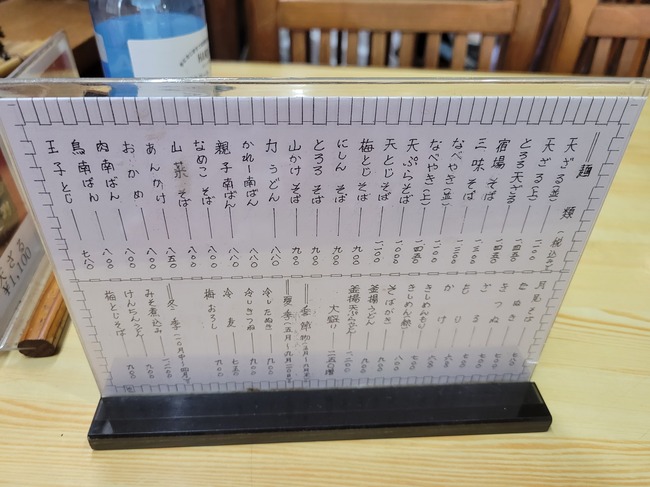 麺類
(税込み)
天ざる(並) 一一〇〇
天ざる(上) 一四五〇
とろろ天ざる 一四五〇
宿場そば
三味そば 一三〇〇
なべやき(並) 一二〇〇
なべやき(上) 一四五〇
天ぷらそば 一〇〇〇
天とじそば 一一〇〇
梅とじそば 九〇〇
にしんそば 九〇〇
とろろそば 九〇〇
山かけそば 九〇〇
力うどん 八八〇
かれー南ばん 八八〇
親子南ばん 八八〇
なめこそば 八〇〇
山菜そば 八五〇
あんかけ 八〇〇
おかめ 八〇〇
肉南ばん 八〇〇
鳥南ばん 八〇〇
玉子とじ 七八〇
月見そば 七五〇
たぬき
きつね
ざる
もり
かけ
きしめん
そばがき 八〇〇
釜揚うどん 九〇〇
釜揚天ぷらうどん 一二〇〇
大盛り 二五〇増
季節物
夏季
冷したぬき 九〇〇
冷しきつね 九〇〇
冷麦 七五〇
梅おろし 九〇〇
冬季
みそ煮込み 一二〇〇
けんちんうどん 九〇〇
梅とじそば 九〇〇
¥1,100